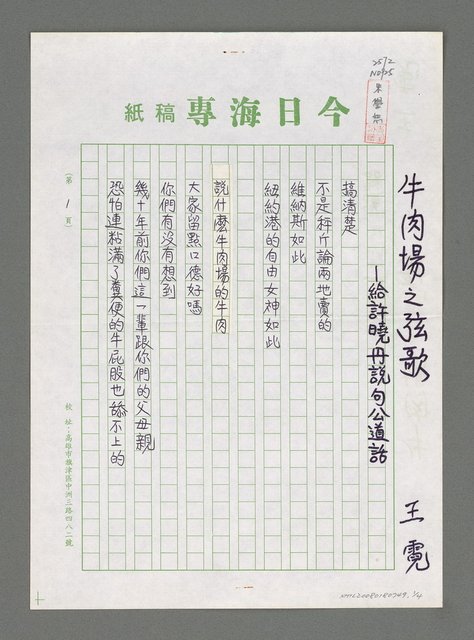 2572
NO25
今日海專稿紙
牛肉場之弦歌
王霓
—給許曉丹說句公道話
搞清楚
不是秤斤論兩地賣的
維納斯如此
紐約港的自由女神如此
說什麼牛肉場的牛肉
大家留點口德好嗎
你們有沒有想到
幾十年前你們這一輩跟你們的父母親
恐怕連粘滿了糞便的牛屁股也舔不上的
(第 1 頁)
校址:高雄市旗津區中洲三路四八二號
NMTL20080180749. 1/4